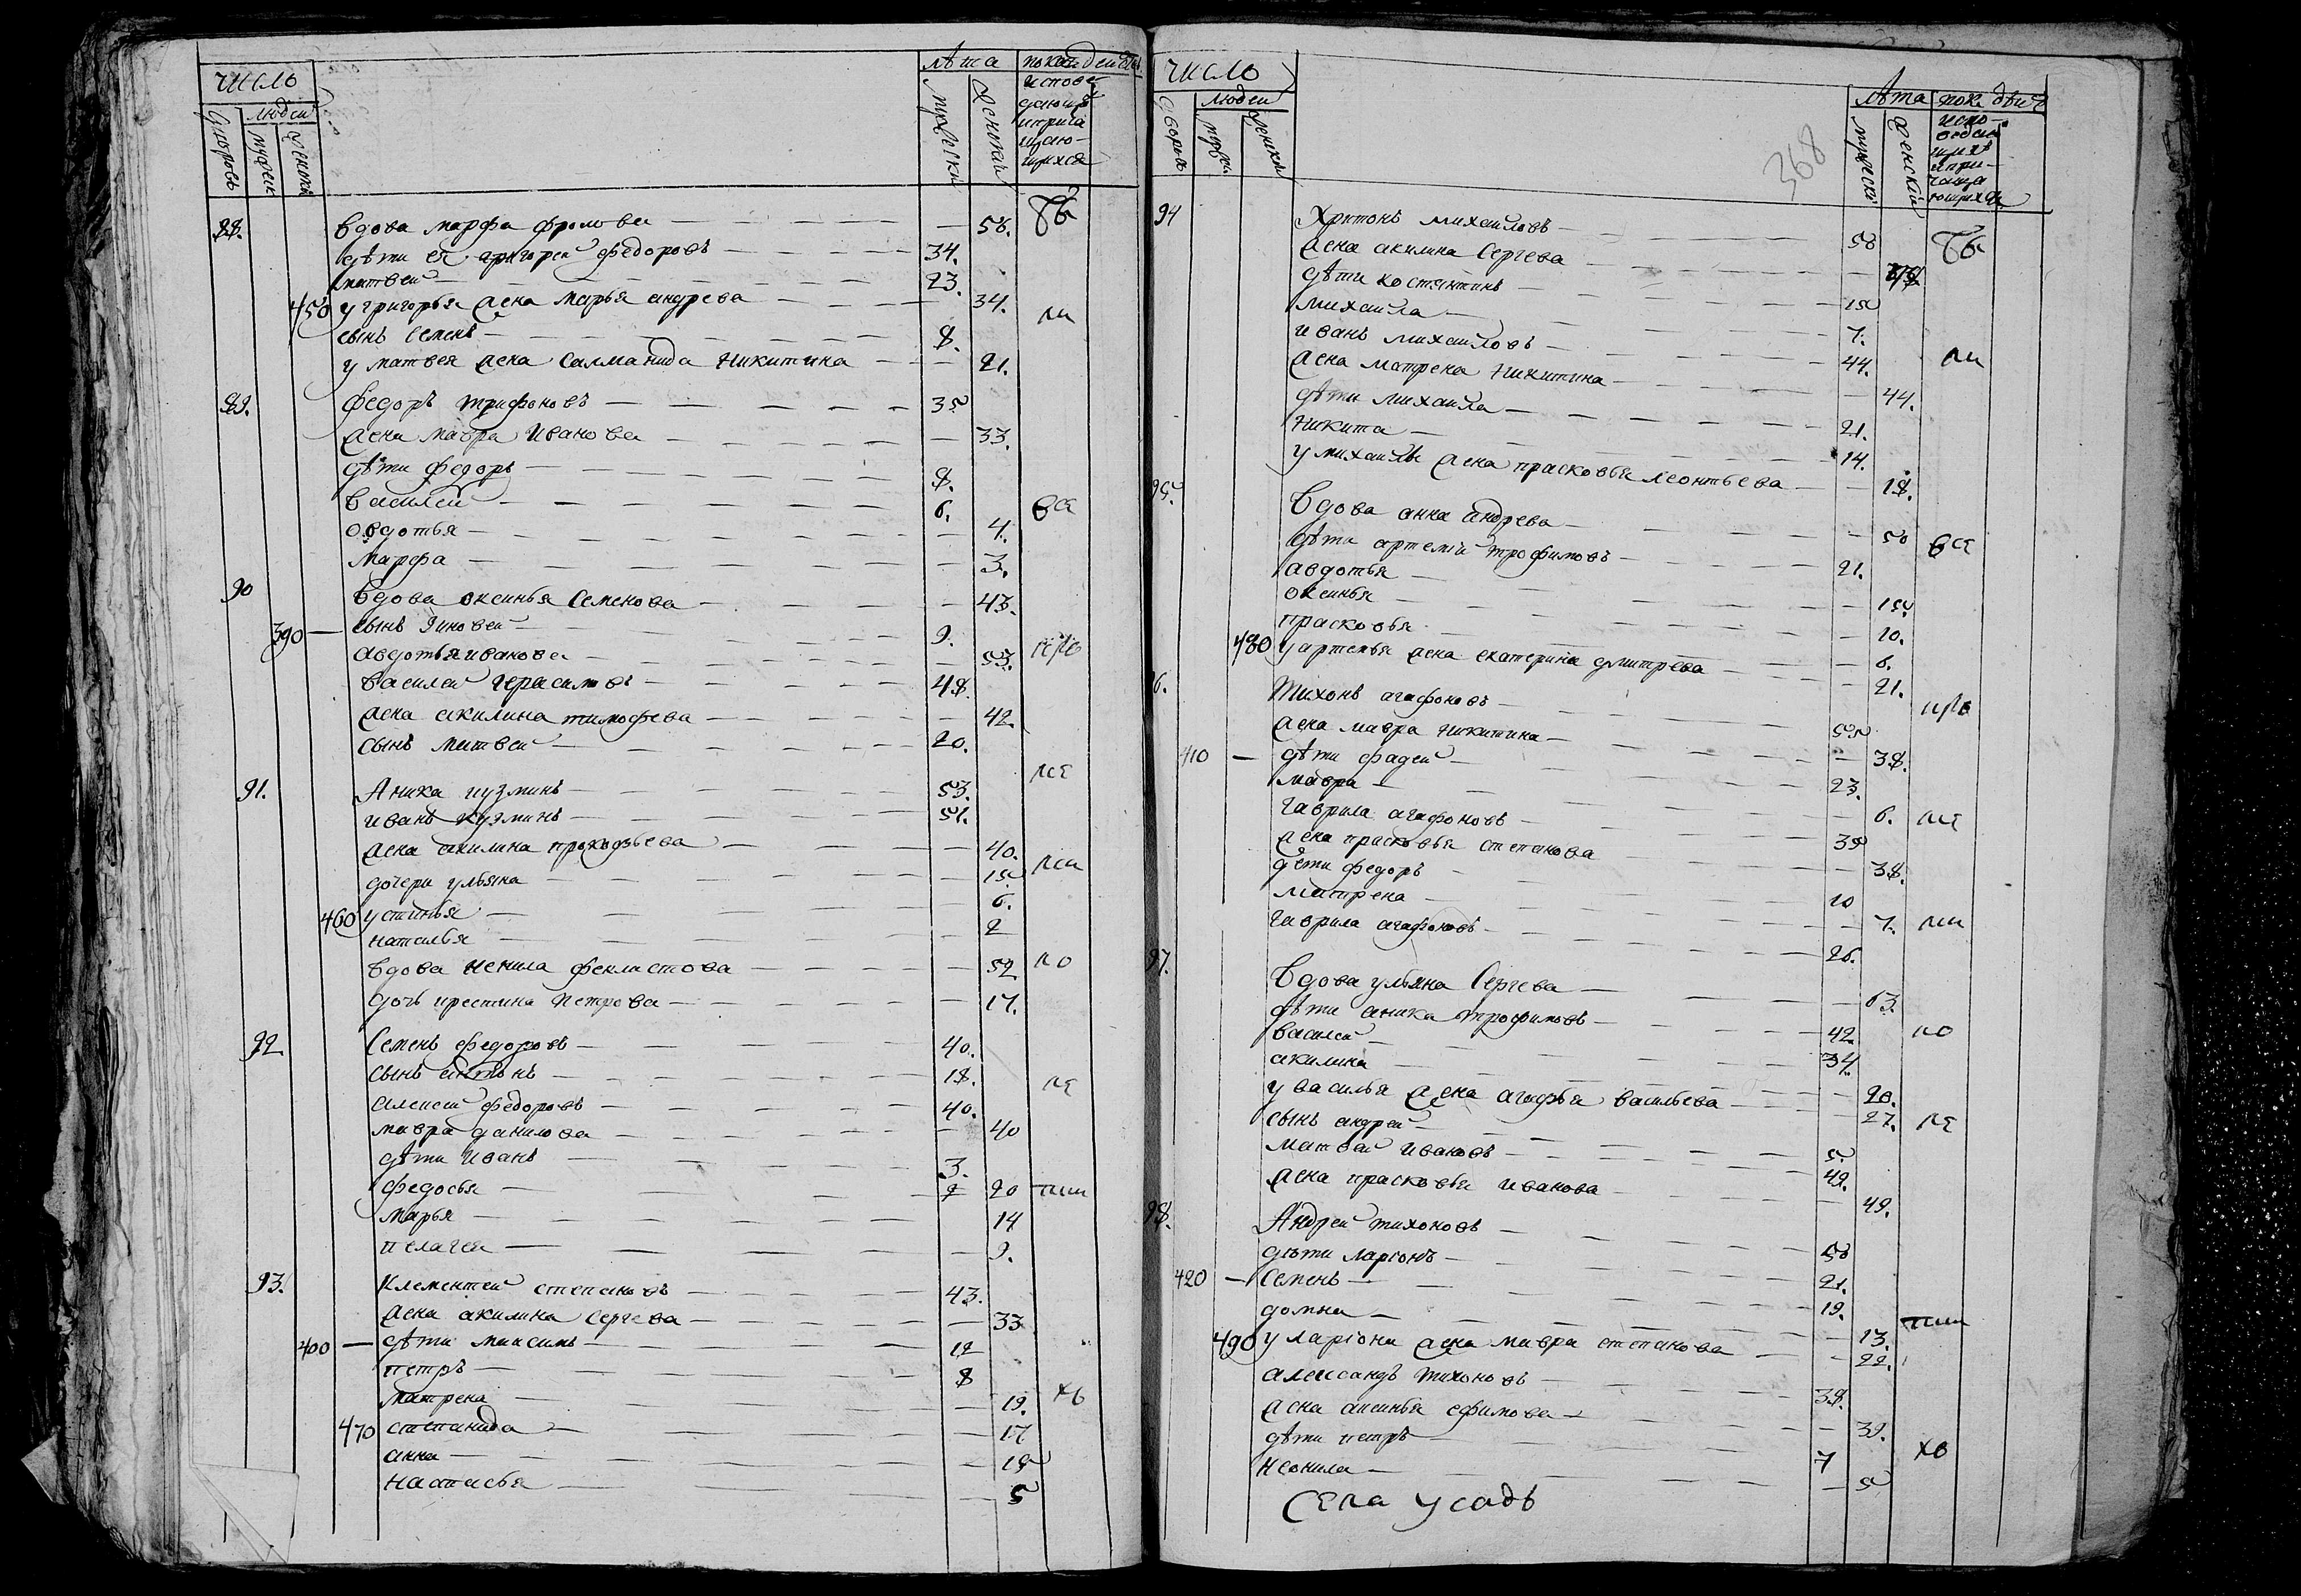 число
людеи
дворовъ
мужеск
женски
лѣта
мужески
женски
испове
дающи
88. вдова марфа фролова — 56.
дѣти ея григореи федоровъ — 34.
матвеи — 23.
450 у григорья жена марья андрева — 34.
сынъ семенъ — 8.
у матвея жена салманида никитина — 21.
89. федоръ трифоновъ — 35
жена мавра иванова — 33.
дѣти федоръ — 8.
василеи — 6.
овдотья — 4.
марфа — 3.
90 вдова оксинья семенова — 43.
390 — сынъ зиновеи — 9.
авдотья иванова — 53.
василеи герасимовъ — 48.
жена акилина тимофева — 42.
сынъ матвеи — 20.
91. Аника кузминъ — 53.
иванъ кузминъ — 51.
жена акилина прокофьева — 40.
дочери ульяна — 15.
460 устинья — 6.
наталья — 2
вдова ненила феклистова — 52
дочь крестина петрова — 17.
92. Семенъ федоровъ — 40.
сынъ антонъ — 18.
алексеи федоровъ — 40.
мавра данилова — 40
дѣти иванъ — 3.
федосья — 2 20
марья — 14
пелагея — 9.
93. Клементеи степановъ — 43.
жена акилина сергева — 33
400 — дѣти максимъ — 12
петръ — 8
матрена — 19.
470 степанида — 17
анна — 15
настасья — 5
бъ
ли
ва
ксе
ко
ке
хв
число
людеи
дворы
лѣта
мужески
женскаи
испо-
ведаю
щихъ
ипри-
чаща
ющихся
368
94 Харитонъ михаиловъ — 58
жена акилина сергева — 48
дѣти костянтинъ — 15
михаила — 7.
иванъ михаиловъ — 44.
жена матрена никитина — 44.
дѣти михаила — 21.
никита — 14.
у михаилы жена прасковья леонтьева — 18.
95. вдова анна андрева — 50
дѣти артемiи трофимовъ — 21.
авдотья — 15.
оксинья — 10.
прасковья — 6.
480 у артемья жена екатерина дмитрева — 21.
96. Тихонъ агафоновъ — 55
жена мавра никитина — 38.
410 — дѣти фадеи — 23.
мавра — 6.
гаврила агафоновъ — 39
жена прасковья степанова — 38.
дети федоръ — 10
матрена — 7.
гаврила агафоновъ — 26.
97. вдова ульяна сергева — 63.
дѣти аника трофимовъ — 42
василеи — 34.
акилина — 20.
у василья жена агафья васильева — 27.
сынъ андреи — 5.
матвеи ивановъ — 49.
жена прасковья иванова — 49.
98. Андреи тихоновъ — 58
дѣти ларiонъ — 21.
420 — семенъ — 19.
домна — 13.
490 у ларiона жена мавра степанова — 22.
александъ тихоновъ — 38.
жена аксинья ефимова — 39.
дѣти петръ — 7
неонила — 5
бъ
ли
все
ко
ке
хв
села усадъ